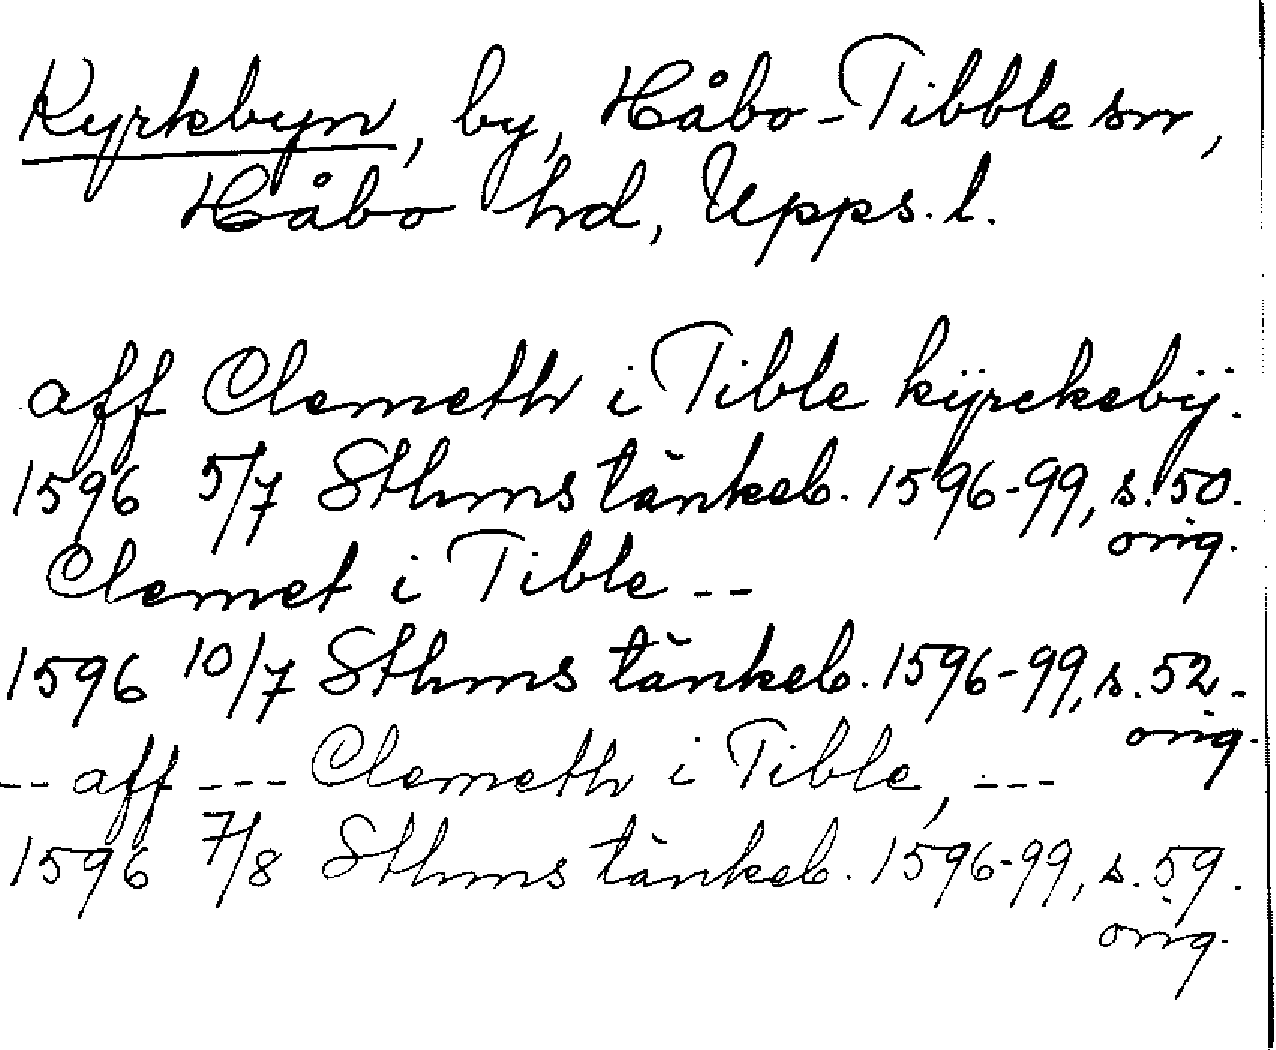 Kyrkbyn, by, Håbo-Tibble sn,
Håbo hd, Upps. l.
aff Clemeth i Tible kÿrckebÿ.
1596 5/7 Sthms tänkeb. 1596-99, s. 50.
orig.
Clemet i Tible --
1596 10/7 Sthms tänkeb. 1596-99, s. 52.
orig.
-- aff --- Clemeth i Tible, ---
1596 7/8 Sthms tänkeb. 1596-99, s. 59.
orig.